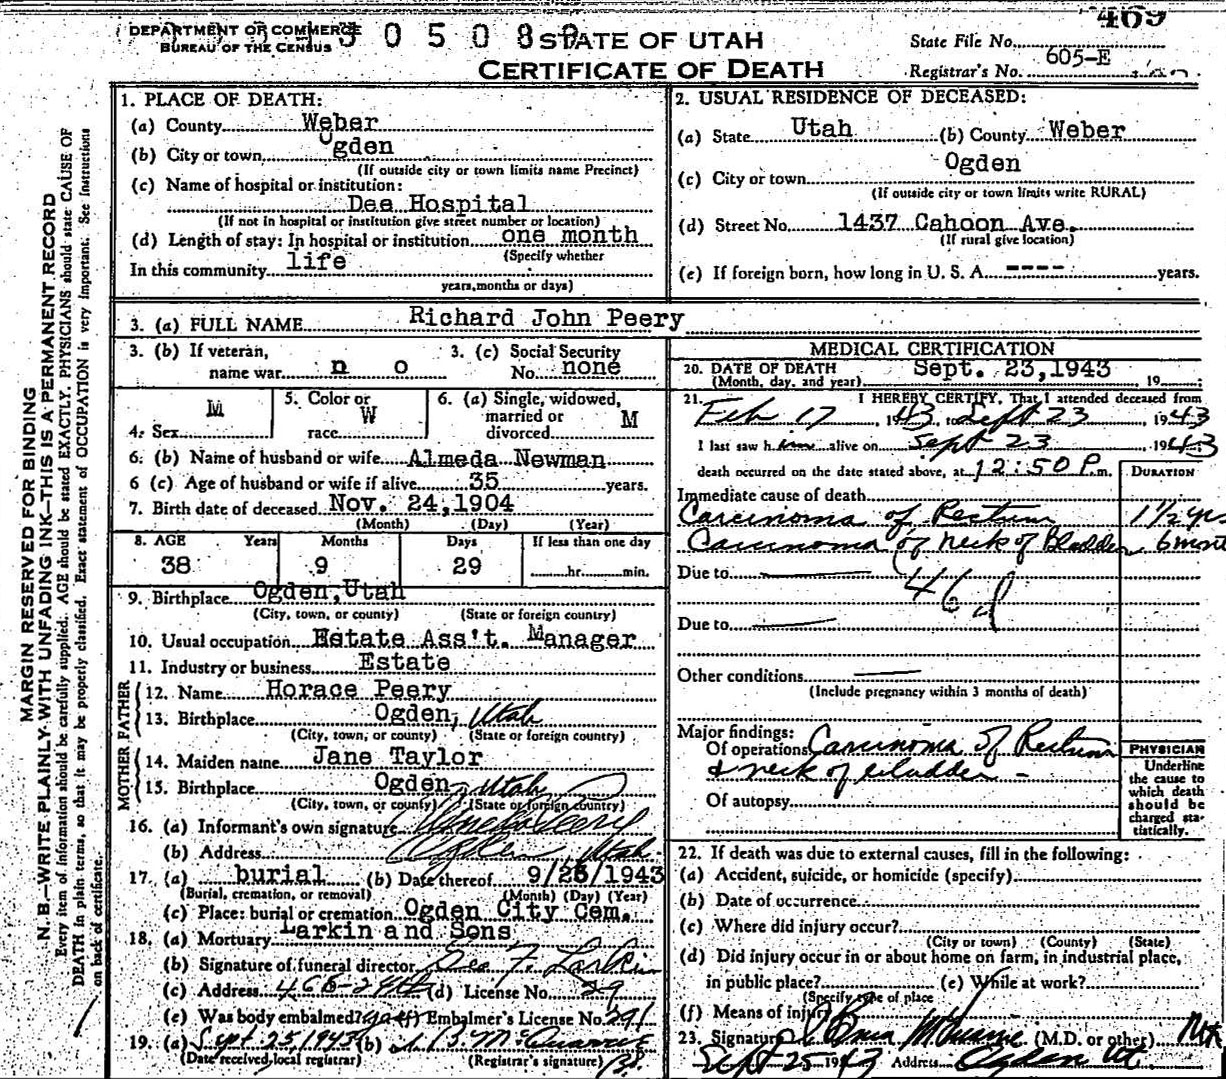 DEPARTMENT OF COMMERCE
BUREAU OF THE CENSUS
STATE OF UTAH
CERTIFICATE OF DEATH
469
State File No.
Registrar's No. 605-E
MARGIN RESERVED FOR BINDING
N. B.—WRITE PLAINLY WITH UNFADING INK—THIS IS A PERMANENT RECORD
Every item of information should be carefully supplied. AGE should be stated EXACTLY. PHYSICIANS should state CAUSE OF
DEATH in plain terms, so that it may be properly classified. Exact statement of OCCUPATION is very important. See instructions
on back of certificate.
1. PLACE OF DEATH:
(a) County Weber
(b) City or town Ogden
(If outside city or town limits name Precinct)
(c) Name of hospital or institution:
Dee Hospital
(If not in hospital or institution give street number or location)
(d) Length of stay: In hospital or institution one month
(Specify whether
In this community life
years, months or days)
2. USUAL RESIDENCE OF DECEASED:
(a) State Utah (b) County Weber
(c) City or town Ogden
(If outside city or town limits write RURAL)
(d) Street No. 1437 Cahoon Ave.
(If rural give location)
(e) If foreign born, how long in U. S. A. ---- years.
3. (a) FULL NAME Richard John Peery
3. (b) If veteran, name war n o
3. (c) Social Security No. none
4. Sex M
5. Color or race W
6. (a) Single, widowed, married or divorced M
6. (b) Name of husband or wife Almeda Newman
6 (c) Age of husband or wife if alive 35 years.
7. Birth date of deceased Nov. 24,1904
(Month) (Day) (Year)
8. AGE Years Months Days If less than one day
38 9 29 hr. min.
9. Birthplace Ogden,Utah
(City, town, or county) (State or foreign country)
10. Usual occupation Estate Ass't. Manager
11. Industry or business Estate
FATHER
12. Name Horace Peery
13. Birthplace Ogden, Utah
(City, town, or county) (State or foreign country)
MOTHER
14. Maiden name Jane Taylor
15. Birthplace Ogden, Utah
(City, town, or county) (State or foreign country)
16. (a) Informant's own signature
(b) Address Ogden, Utah
17. (a) burial (b) Date thereof 9/25/1943
(Burial, cremation, or removal) (Month) (Day) (Year)
(c) Place: burial or cremation Ogden City Cem.
18. (a) Mortuary Larkin and Sons
(b) Signature of funeral director Geo F. Larkin
(c) Address 466-24th (d) License No. 29
(e) Was body embalmed? yes (f) Embalmer's License No. 291
19. (a) Sept 25, 1943 (b)
(Date received, local registrar) (Registrar's signature)
MEDICAL CERTIFICATION
20. DATE OF DEATH Sept. 23,1943, 19
(Month, day, and year)
21. I HEREBY CERTIFY, That I attended deceased from
Feb 17, 1943, to Sept 23, 1943
I last saw him alive on Sept 23, 1943
death occurred on the date stated above, at 12:50 P.m.
DURATION
Immediate cause of death
Carcinoma of Rectum 1 1/2 yrs
Carcinoma of neck of Bladder 6 mont
Due to
46d
Due to
Other conditions
(Include pregnancy within 3 months of death)
Major findings:
Of operations Carcinoma of Rectum
& neck of bladder -
Of autopsy
PHYSICIAN
Underline
the cause to
which death
should be
charged sta-
tistically.
22. If death was due to external causes, fill in the following:
(a) Accident, suicide, or homicide (specify)
(b) Date of occurrence
(c) Where did injury occur?
(City or town) (County) (State)
(d) Did injury occur in or about home on farm, in industrial place,
in public place? (e) While at work?
(Specify type of place
(f) Means of injury
23. Signature (M.D. or other)
Sept 25 1943 Address Ogden Ut.